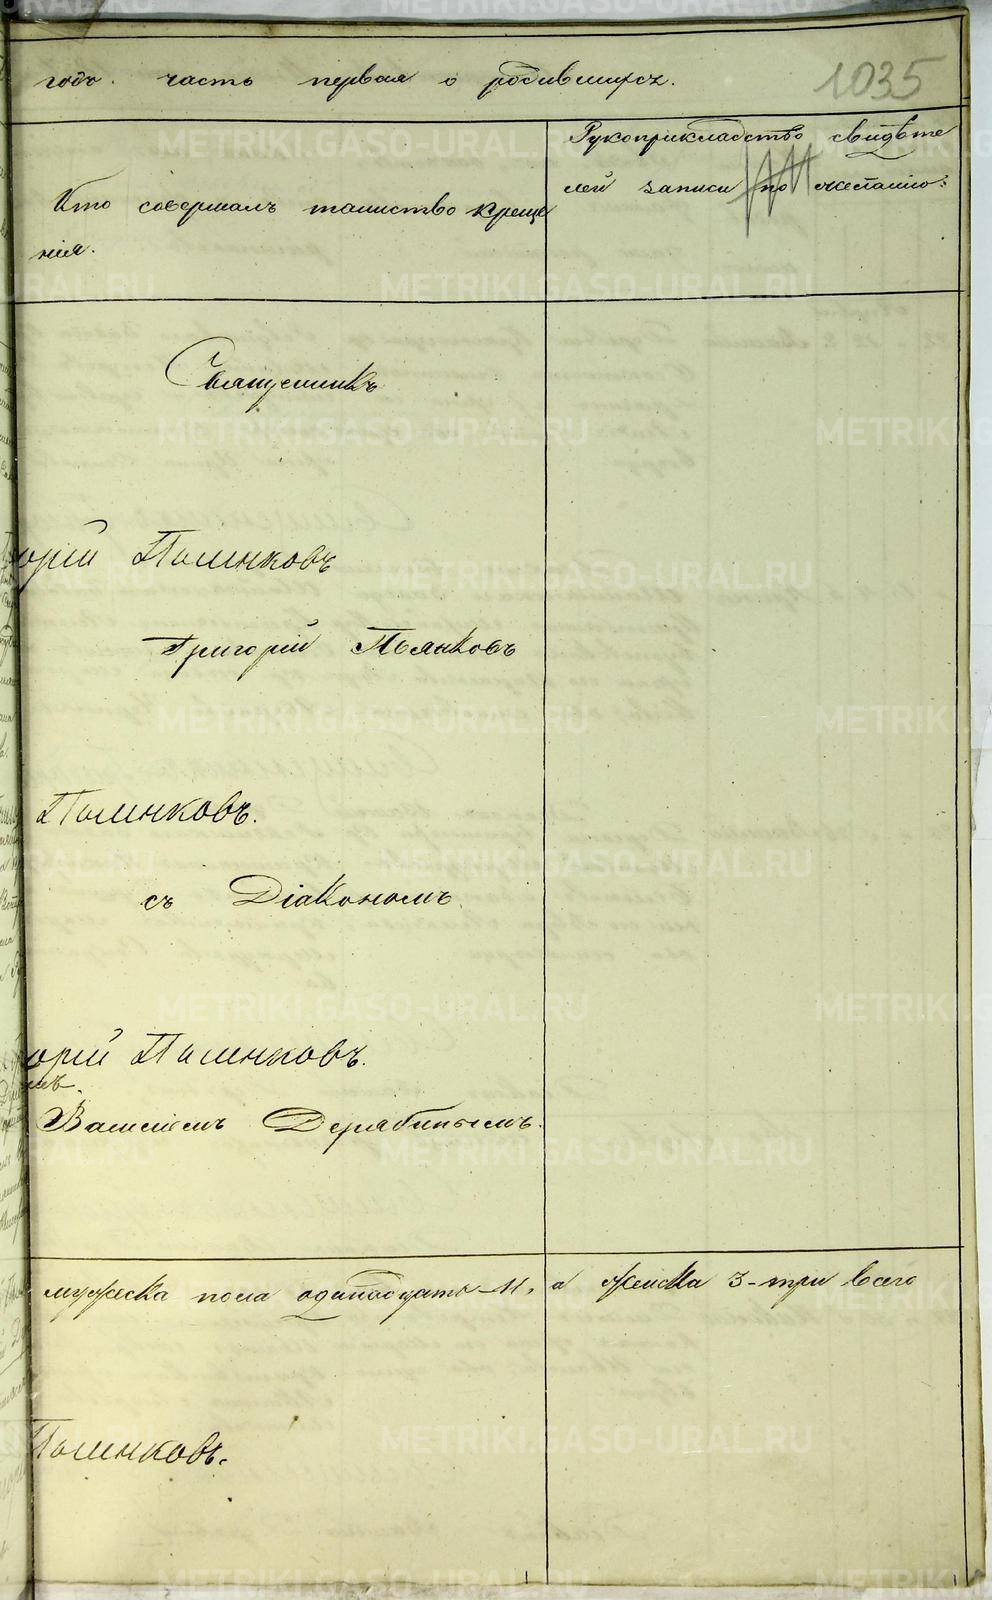 годъ. часть первая о родившихся.
1035
Кто совершалъ таинство креще
нія.
Рукоприкладство свидѣте
лей записи по желанію:
Священникъ
орій Пьянковъ
Григорій Пьянковъ
Пьянковъ.
съ Діакономъ
орій Пьянковъ.
Василіемъ Дерябинымъ.
мужеска пола одинадцать-11, а женска 3-три всего
Пьянковъ.